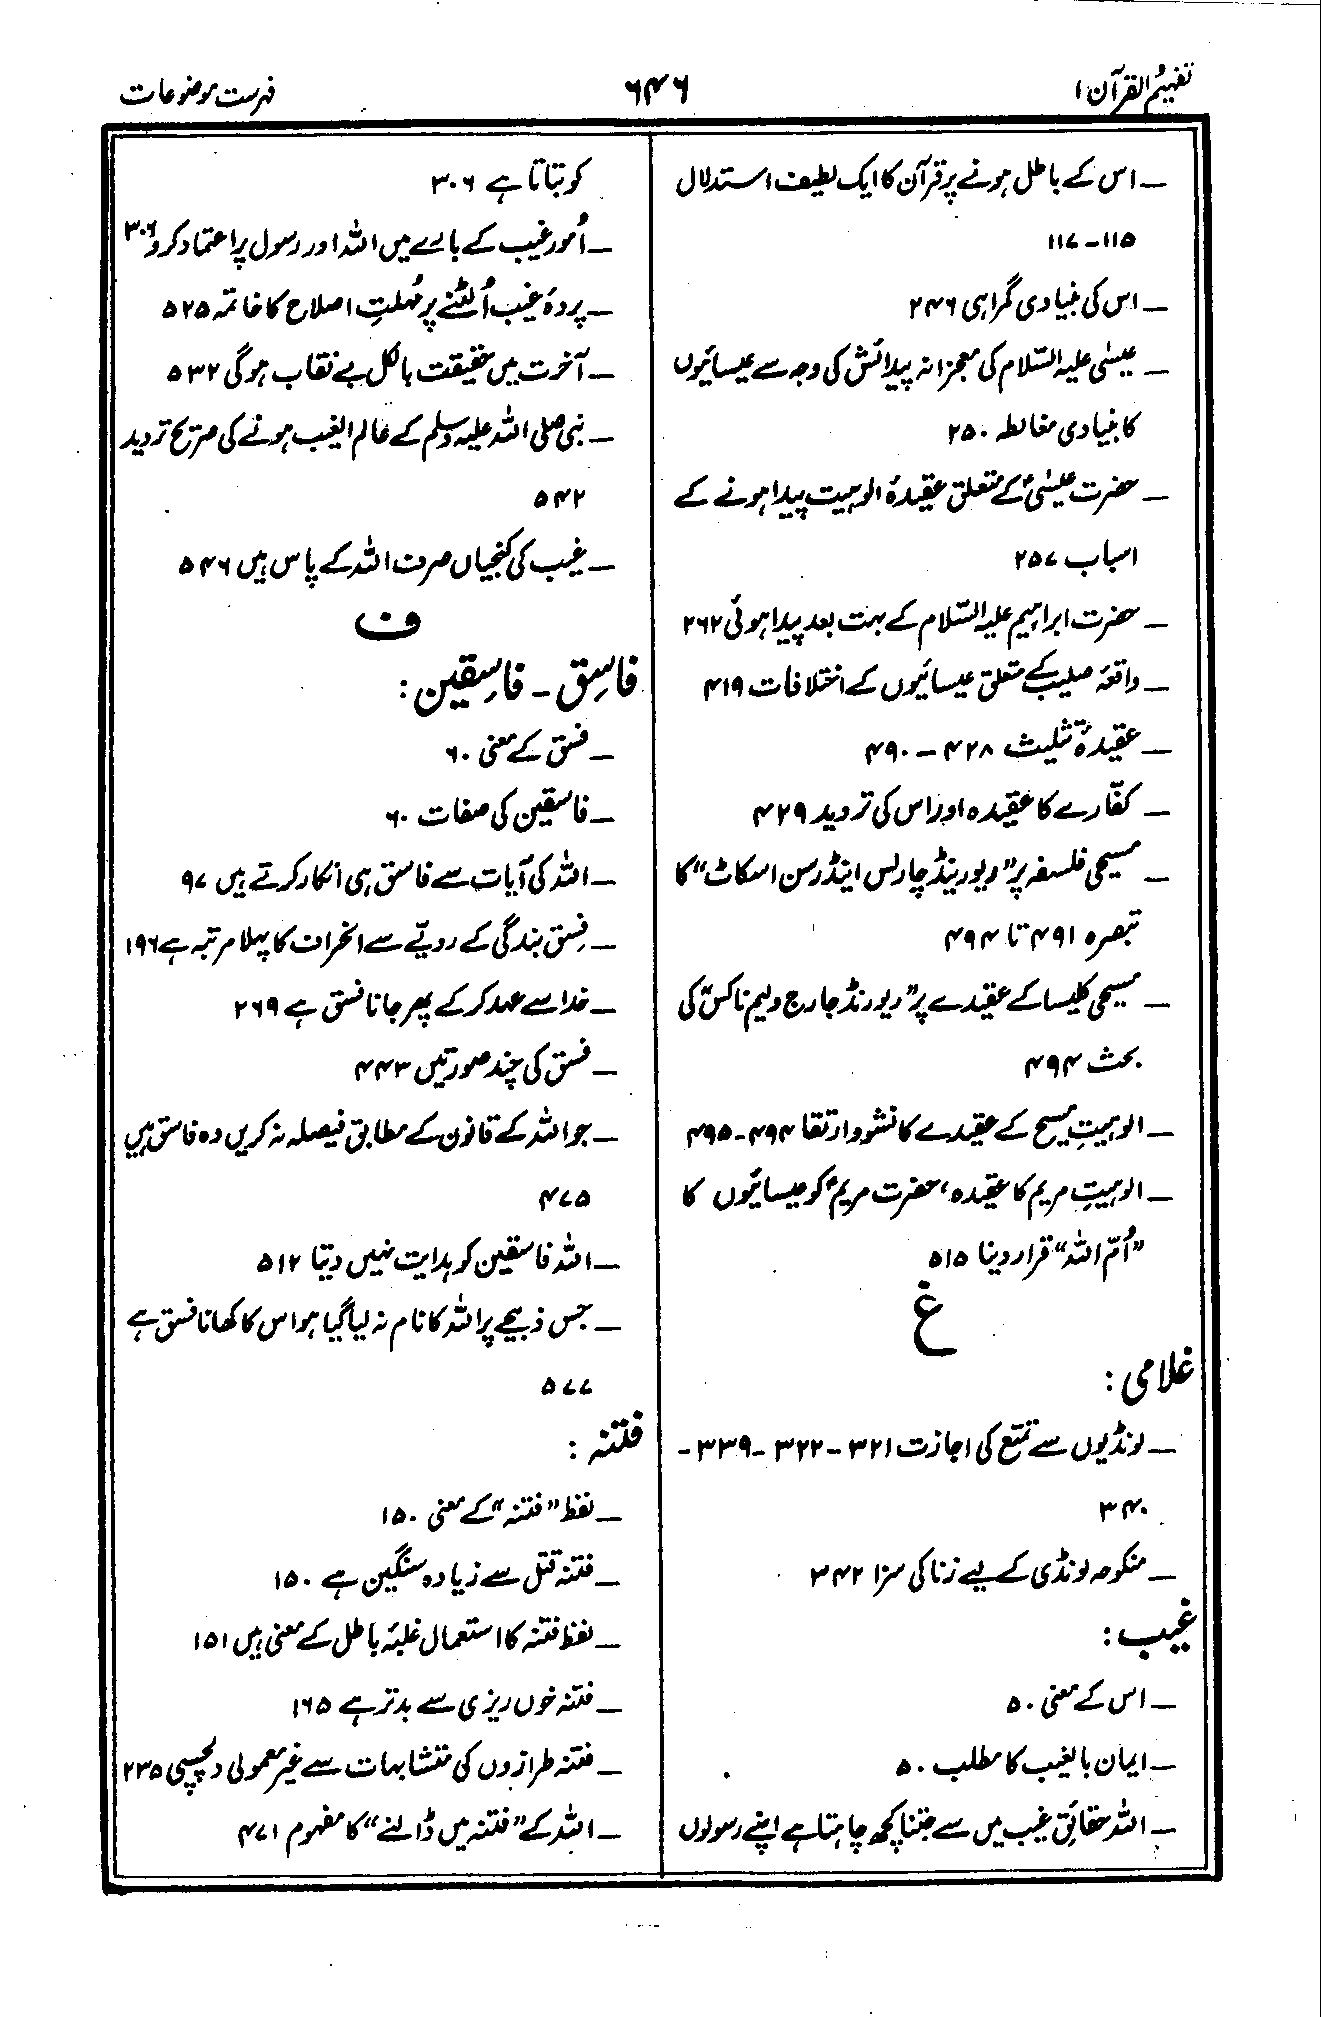 تفہیم القرآن ۱
۶۴۶
فہرست موضوعات
— اس کے باطل ہونے پر قرآن کا ایک لطیف استدلال
۱۱۵-۱۱۷
— اس کی بنیادی گمراہی ۲۴۶
— عیسیٰ علیہ السّلام کی معجزانہ پیدائش کی وجہ سے عیسائیوں
کا بنیادی مغالطہ ۲۵۰
— حضرت عیسیٰؑ کے متعلق عقیدۂ الوہیت پیدا ہونے کے
اسباب ۲۵۷
— حضرت ابراہیم علیہ السّلام کے بہت بعد پیدا ہوئی ۲۶۲
— واقعۂ صلیب کے متعلق عیسائیوں کے اختلافات ۴۱۹
— عقیدۂ تثلیث ۴۲۸ — ۴۹۰
— کفّارے کا عقیدہ اور اس کی تردید ۴۲۹
— مسیحی فلسفہ پر ”ریورینڈ چارلس اینڈرسن اسکاٹ“ کا
تبصرہ ۴۹۱ تا ۴۹۴
— مسیحی کلیسا کے عقیدے پر ”ریورنڈ جارج ولیم ناکس“ کی
بحث ۴۹۴
— الوہیتِ مسیح کے عقیدے کا نشو و ارتقا ۴۹۴-۴۹۵
— الوہیتِ مریم کا عقیدہ، حضرت مریمؑ کو عیسائیوں کا
”اُمّ اللہ“ قرار دینا ۵۱۵
غ
غلامی :
— لونڈیوں سے تمتّع کی اجازت ۳۲۱ - ۳۲۲ - ۳۳۹ -
۳۴۰
— منکوحہ لونڈی کے لیے زنا کی سزا ۳۴۲
غیب :
— اس کے معنی ۵۰
— ایمان بالغیب کا مطلب ۵۰
— اللہ حقائقِ غیب میں سے جتنا کچھ چاہتا ہے اپنے رسولوں
کو بتاتا ہے ۳۰۶
— اُمور غیب کے بارے میں اللہ اور رسول پر اعتماد کرو ۳۰۶
— پردۂ غیب اُلٹنے پر مُہلتِ اصلاح کا خاتمہ ۵۲۵
— آخرت میں حقیقت بالکل بے نقاب ہوگی ۵۳۲
— نبی صلی اللہ علیہ وسلم کے عالم الغیب ہونے کی صریح تردید
۵۴۲
— غیب کی کنجیاں صرف اللہ کے پاس ہیں ۵۴۶
ف
فاسِق - فاسِقین :
— فسق کے معنی ۶۰
— فاسقین کی صفات ۶۰
— اللہ کی آیات سے فاسق ہی انکار کرتے ہیں ۹۷
— فِسق بندگی کے رویّے سے انحراف کا پہلا مرتبہ ہے ۱۹۶
— خدا سے عہد کر کے پھر جانا فسق ہے ۲۶۹
— فسق کی چند صورتیں ۴۴۳
— جو اللہ کے قانون کے مطابق فیصلہ نہ کریں وہ فاسق ہیں
۴۷۵
— اللہ فاسقین کو ہدایت نہیں دیتا ۵۱۲
— جس ذبیحے پر اللہ کا نام نہ لیا گیا ہو اس کا کھانا فسق ہے
۵۷۷
فتنہ :
— لفظ ”فتنہ“ کے معنی ۱۵۰
— فتنہ قتل سے زیادہ سنگین ہے ۱۵۰
— لفظ فتنہ کا استعمال غلبۂ باطل کے معنی ہیں ۱۵۱
— فتنہ خوں ریزی سے بدتر ہے ۱۶۵
— فتنہ طرازوں کی متشابہات سے غیر معمولی دلچسپی ۲۳۵
— اللہ کے ”فتنہ میں ڈالنے“ کا مفہوم ۴۷۱